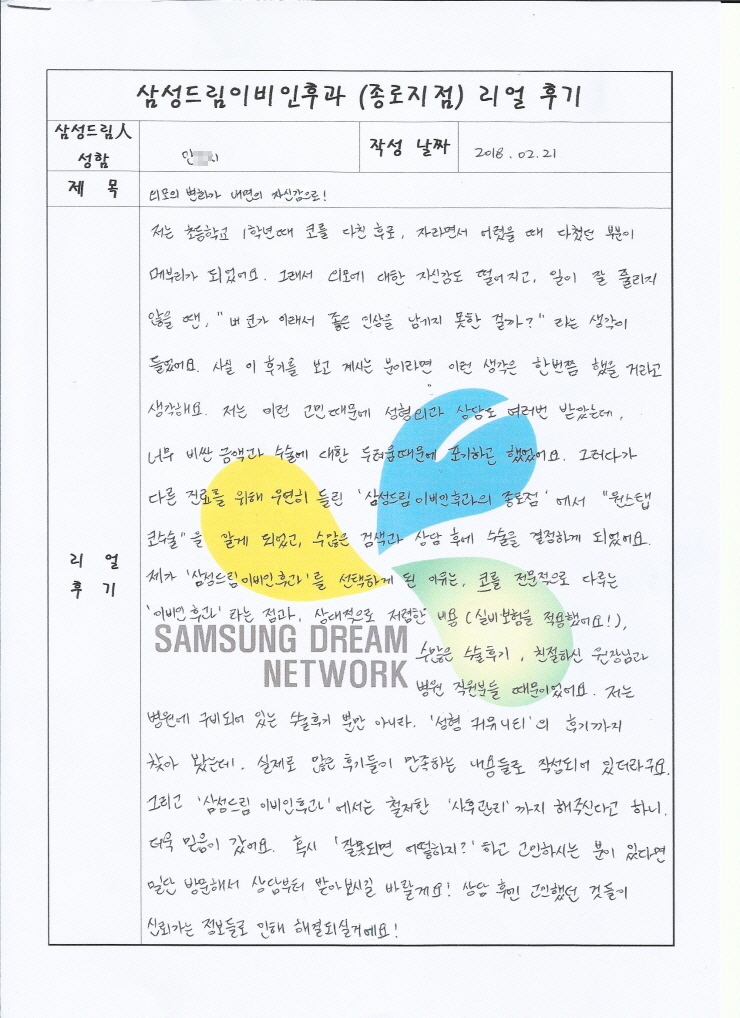 삼성드림이비인후과 (종로지점) 리얼 후기
삼성드림人
성함
민 시
작성 날짜
2018. 02. 21
제 목
외모의 변화가 내면의 자신감으로!
리 얼
후 기
저는 초등학교 1학년때 코를 다친 후로, 자라면서 어렸을 때 다쳤던 부분이
메부리가 되었어요. 그래서 외모에 대한 자신감도 떨어지고, 일이 잘 풀리지
않을 땐, "내 코가 이래서 좋은 인상을 남기지 못한 걸까?" 라는 생각이
들었어요. 사실 이 후기를 보고 계시는 분이라면 이런 생각은 한번쯤 했을 거라고
생각해요. 저는 이런 고민때문에 성형외과 상담도 여러번 받았는데,
너무 비싼 금액과 수술에 대한 두려움때문에 포기하곤 했었어요. 그러다가
다른 진료를 위해 우연히 들린 '삼성드림이비인후과의 종로점' 에서 "원스탭
코수술"을 알게 되었고, 수많은 검색과 상담 후에 수술을 결정하게 되었어요.
제가 '삼성드림이비인후과'를 선택하게 된 이유는, 코를 전문적으로 다루는
'이비인후과' 라는 점과, 상대적으로 저렴한 비용 (실비보험을 적용했어요!),
SAMSUNG DREAM
NETWORK
수많은 수술후기, 친절하신 원장님과
병원 직원분들 때문이었어요. 저는
병원에 구비되어 있는 수술후기 뿐만 아니라, '성형 커뮤니티'의 후기까지
찾아 봤는데, 실제로 많은 후기들이 만족하는 내용들로 작성되어 있더라구요.
그리고 '삼성드림 이비인후과'에서는 철저한 '사후관리'까지 해주신다고 하니,
더욱 믿음이 갔어요. 혹시 '잘못되면 어떻하지?' 하고 고민하시는 분이 있다면
일단 방문해서 상담부터 받아보시길 바랄게요! 상담 후엔 고민했던 것들이
신뢰가는 정보들로 인해 해결되실거에요!